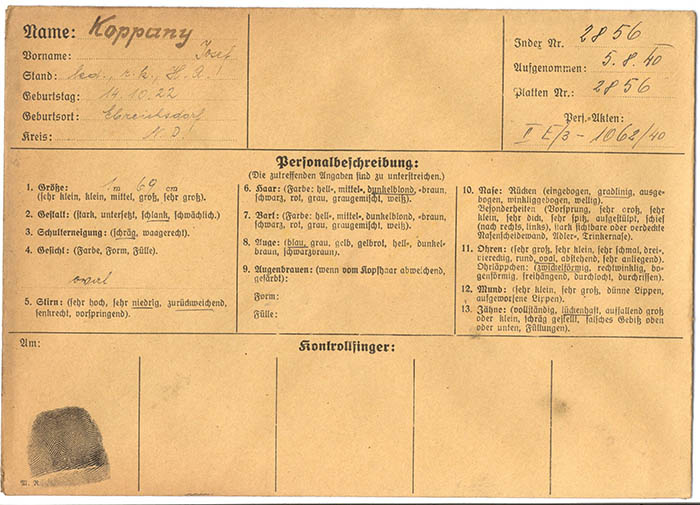 Name: Koppany
Vorname: Josef
Stand: led., r. k., H. A.!
Geburtstag: 14.10.22
Geburtsort:
Kreis: N. D.!
Index Nr. 2856
Aufgenommen: 5.8.40
Platten Nr.: 2856
Pers.-Akten:
II E/3 - 1062/40
Personalbeschreibung:
(Die zutreffenden Angaben sind zu unterstreichen.)
1. Größe: 1 m 69 cm
(sehr klein, klein, mittel, groß, sehr groß).
2. Gestalt: (stark, untersetzt, schlank, schwächlich.)
3. Schulterneigung: (schräg, waagerecht.)
4. Gesicht: (Farbe, Form, Fülle).
oval
5. Stirn: (sehr hoch, sehr niedrig, zurückweichend,
senkrecht, vorspringend).
6. Haar: (Farbe: hell-, mittel-, dunkelblond, -braun,
schwarz, rot, grau, graugemischt, weiß).
7. Bart: (Farbe: hell-, mittel-, dunkelblond, -braun,
schwarz, rot, grau, graugemischt, weiß).
8. Auge: (blau, grau, gelb, gelbrot, hell-, dunkel-
braun, schwarzbraun).
9. Augenbrauen: (wenn vom Kopfhaar abweichend,
gefärbt):
Form:
Fülle:
10. Nase: Rücken (eingebogen, gradlinig, ausge-
bogen, winkliggebogen, wellig).
Besonderheiten (Vorsprung, sehr groß, sehr
klein, sehr dick, sehr spitz, aufgestülpt, schief
(nach rechts, links), stark sichtbare oder verdeckte
Nasenscheidewand, Adler-, Trinkernase).
11. Ohren: (sehr groß, sehr klein, sehr schmal, drei-,
viereckig, rund, oval, abstehend, sehr anliegend).
Ohrläppchen: (zwickelförmig, rechtwinklig, bo-
genförmig, freihängend, durchlocht, durchrissen).
12. Mund: (sehr klein, sehr groß, dünne Lippen,
aufgeworfene Lippen).
13. Zähne: (vollständig, lückenhaft, auffallend groß
oder klein, schräg gestellt, falsches Gebiß oben
oder unten, Füllungen).
Am:
Kontrollfinger: